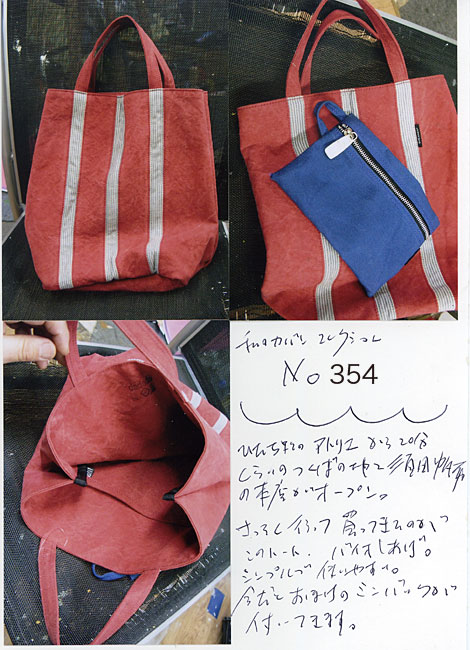 私のカバン コレクション
No 354
のアトリエから20分
くらいのつくばの地に
の本店がオープン。
さっそく行って買ってきたのが
このトート、バイオしあげ。
シンプルで使いやすい。
今だとおまけのミンバックが
付いてきます。